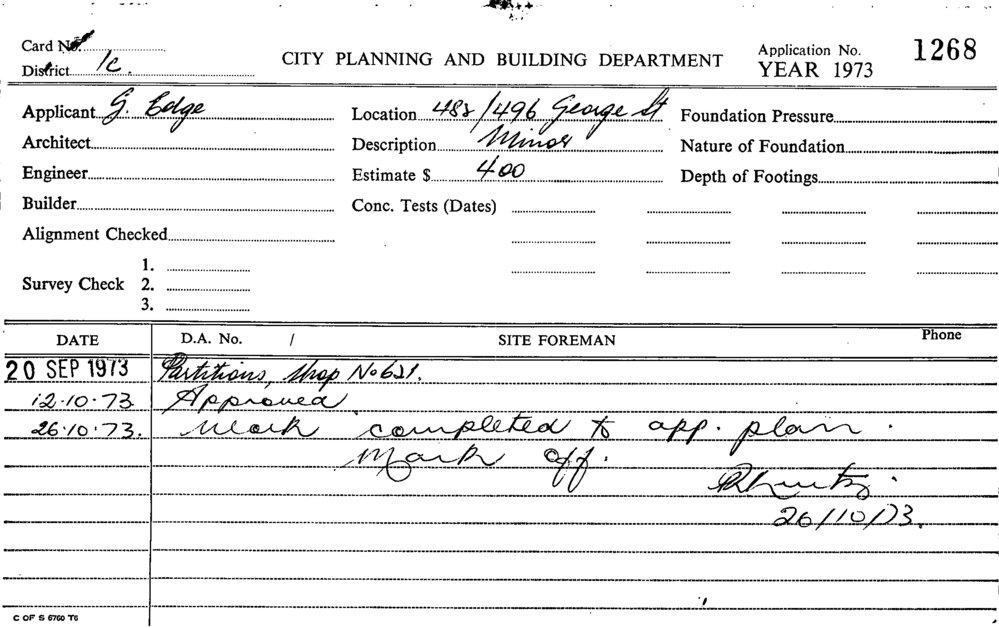 Card No.
District 1c.
CITY PLANNING AND BUILDING DEPARTMENT
Application No. 1268
YEAR 1973
Applicant G. Edge
Location 482/496 George St
Foundation Pressure
Architect
Description Minor
Nature of Foundation
Engineer
Estimate $ 400
Depth of Footings
Builder
Conc. Tests (Dates)
Alignment Checked
Survey Check 1.
2.
3.
DATE D.A. No. / SITE FOREMAN Phone
20 SEP 1973 Partitions, Shop No 621.
12.10.73 Approved
26.10.73. Work completed to app. plan.
Mark off.
26/10/73.
C OF S 6760 T6